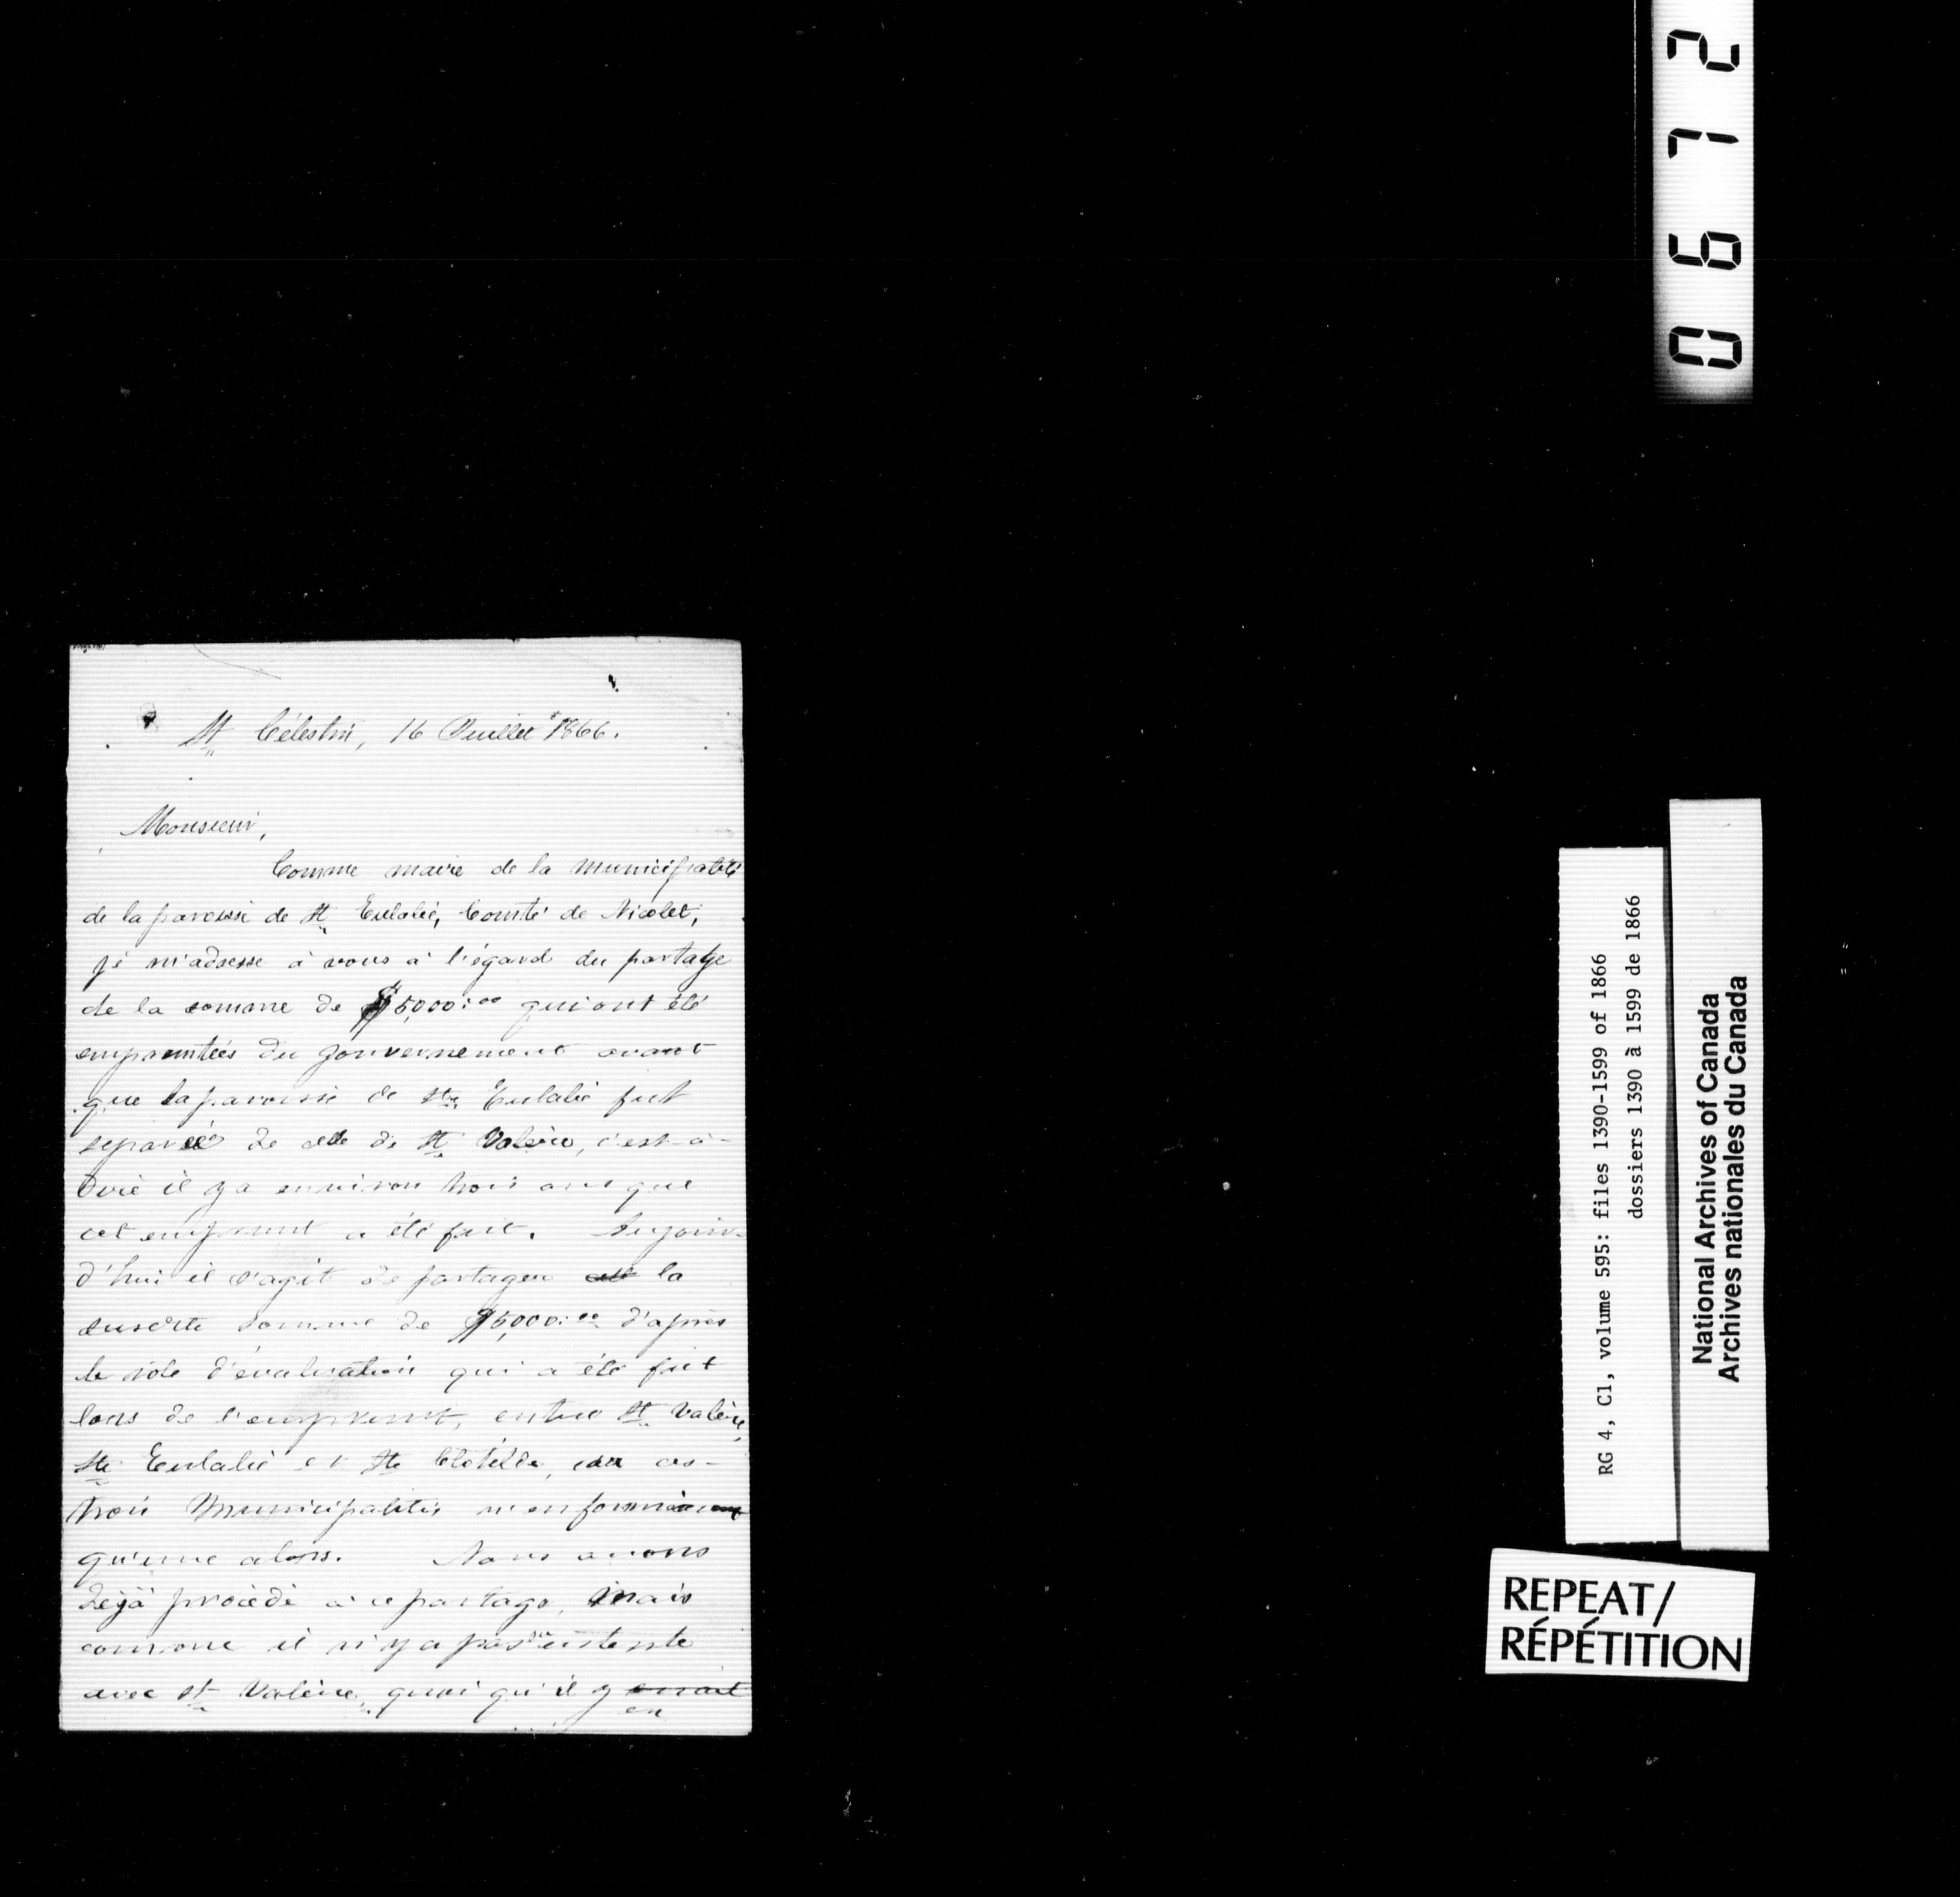 St Célestin, 16 Juillet 1866.
Monsieur,
Comme maire de la Municipalité
de la paroisse de St Eulalie, Comté de Nicolet,
je m'adresse à vous à l'égard du partage
de la somme de $5,000:00 qui ont été
empruntées du gouvernement avant
que la paroisse de Ste Eulalie fut
separée de celle de St Valère, c'est-à-
dire il y a environ trois ans que
cet emprunt a été fait. Aujour-
d'hui il s'agit de partager la
susdite somme de $5,000:00 d'après
le rôle d'évaluation qui a été fait
lors de l'emprunt, entre St Valère,
Ste Eulalie et Ste Clotilde, car ces
trois Municipalités n'en formaient
qu'une alors. Nous avons
déjà procédé à ce partage, mais
comme il n'y a pas eu entente
avec St Valère, quoi qu'il y
en
0672
RG 4, C1, volume 595: files 1390-1599 of 1866
dossiers 1390 à 1599 de 1866
National Archives of Canada
Archives nationales du Canada
REPEAT/
RÉPÉTITION